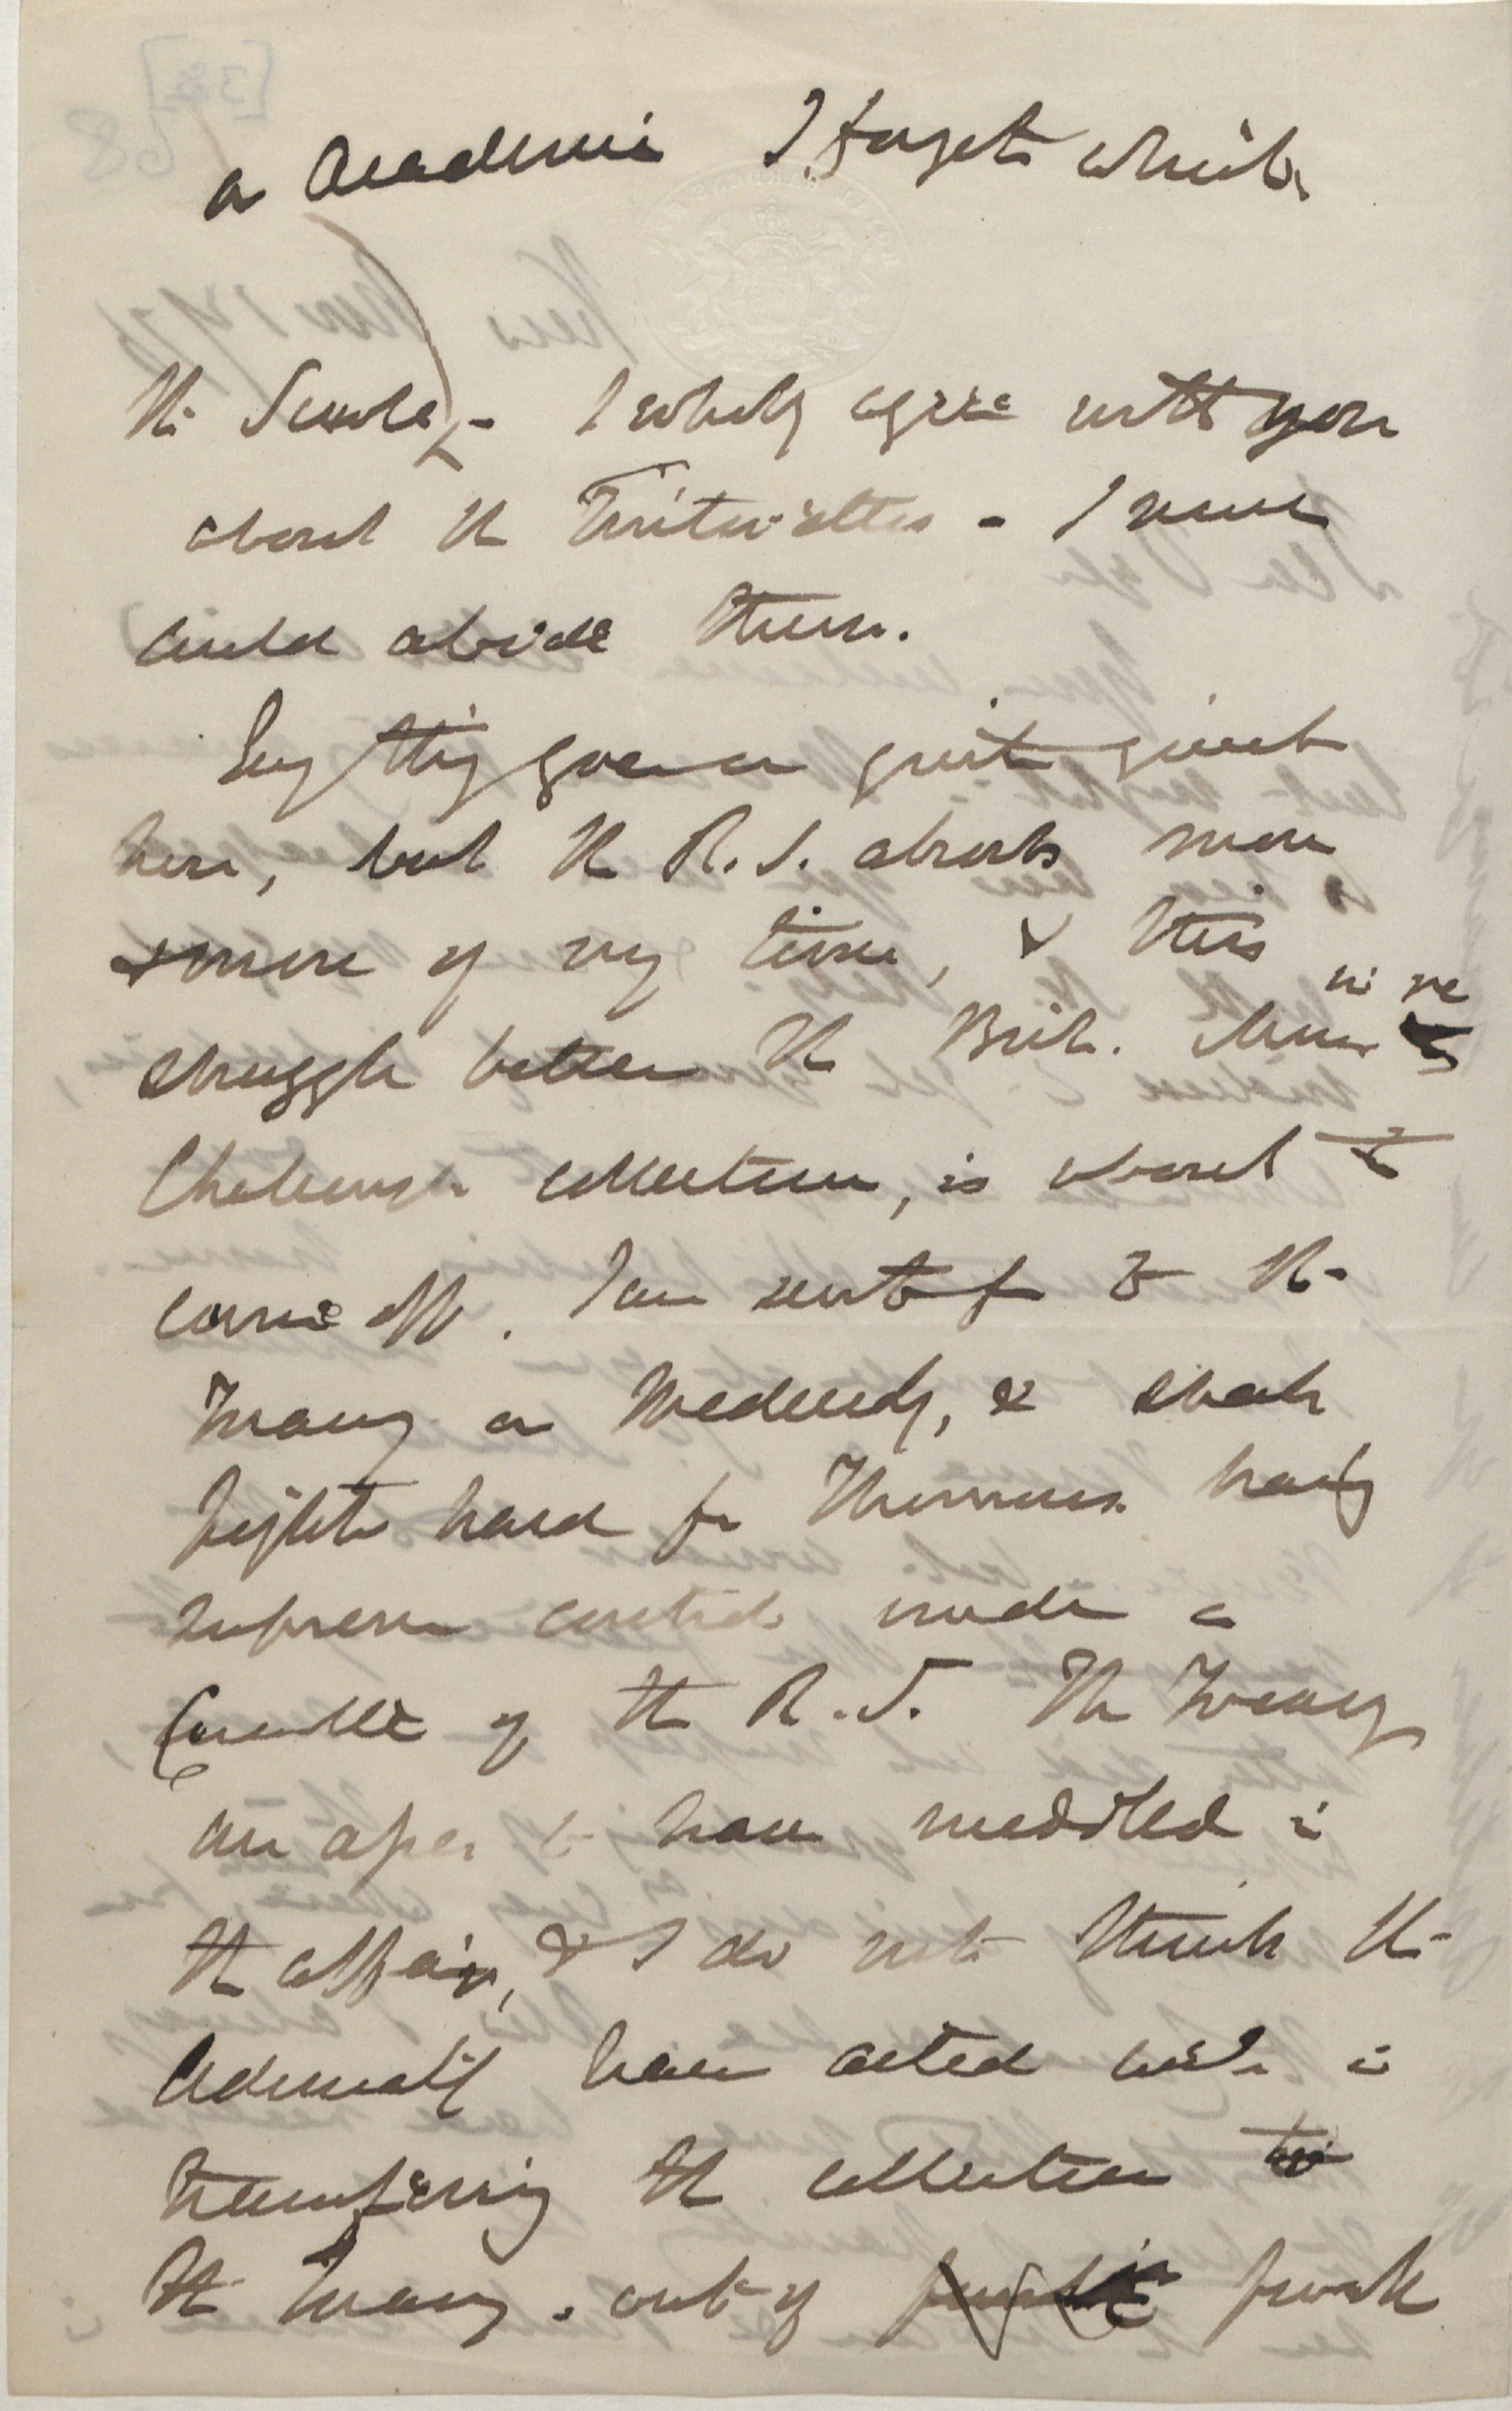 or Academie I forget which.
the Scuola) – I wholly agree with you
about the Tintorettos – I never
could abide them.
Every thing goes on quite quiet
here, but the R.S. absorbs more
& more of my time, & this
struggle between the Brit. Mus in re
Challenger collection, is about to
come off. I am sent for to the
Treasy on Wednesdy, & shall
fight hard for Thomson having
supreme control under a
Committee of the R.S. The Treasy
are apes to have meddled in
the affair, & I do not think the
Admiralty have acted well in
transferring the collection to
the Treasy. out of